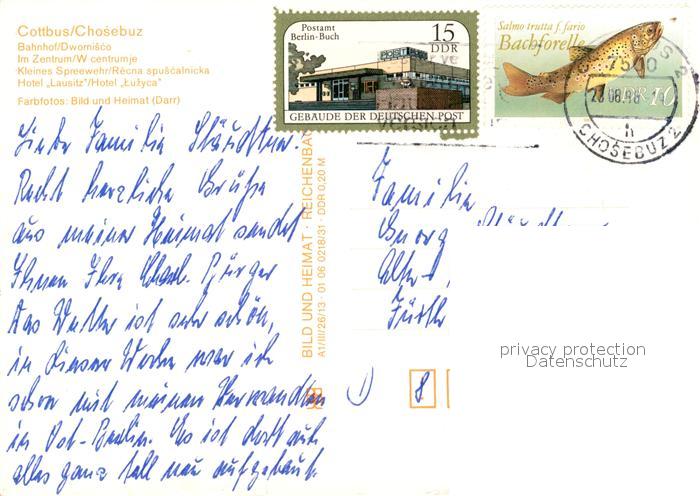 Cottbus/Chośebuz
Bahnhof/Dwornišćo
Im Zentrum/W centrumje
Kleines Spreewehr/Rěcna spušćalnicka
Hotel „Lausitz"/Hotel „Łužyca"
Farbfotos: Bild und Heimat (Darr)
Postamt
Berlin-Buch
15
DDR
GEBÄUDE DER DEUTSCHEN POST
Salmo trutta f. fario
Bachforelle
DDR 10
7500
h
CHOŚEBUZ 2
Liebe Familie
Recht herzliche Grüße
aus meiner Heimat sendet
Ihnen Ihre Bürger
Das Wetter ist sehr schön,
in dieser Woche war ich
schon mit meinen Verwandten
in Ost-Berlin. Es ist dort auch
alles ganz toll neu aufgebaut.
BILD UND HEIMAT · REICHENBACH
A1/III/26/13 01 06 0218/31 · DDR 0,20 M
Familie
Georg
Alte
Fürth
8
privacy protection
Datenschutz